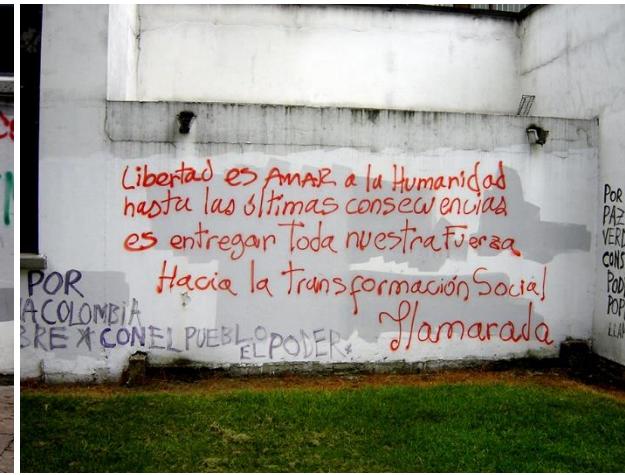 Libertad es AMAR a la Humanidad
hasta las últimas consecuencias
es entregar Toda nuestra Fuerza
Hacia la transformación Social
Llamarada
POR
A COLOMBIA
BRE * CON EL PUEBLO
EL PODER *
POR
PAZ
VERD
CONS
POD
POP
LLAM